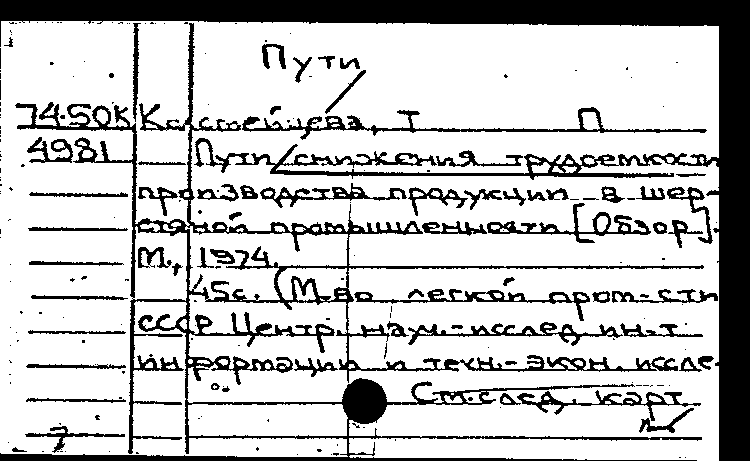 Пути
74-50К Коломейцева, Т П
4981 Пути снижения трудоемкости
производства продукции в шер-
стяной промышленности [Обзор].
М., 1974.
45с. (М-во легкой пром-сти
СССР Центр. науч.-исслед. ин-т
информации и техн.-экон. иссле-
См. след. карт.